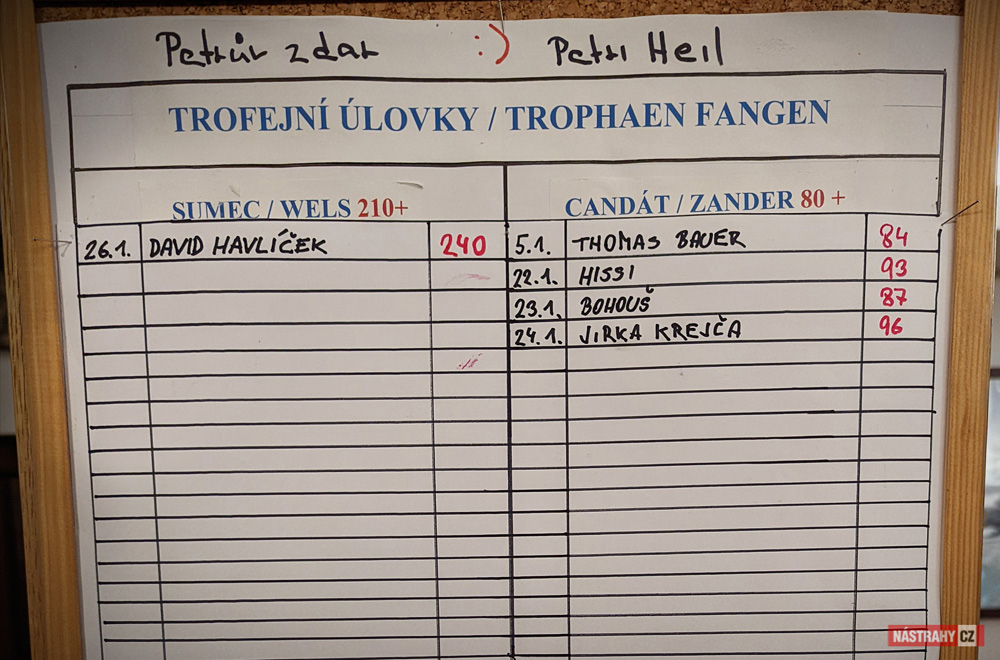 Petrův zdar :) Petri Heil
TROFEJNÍ ÚLOVKY / TROPHAEN FANGEN
SUMEC / WELS 210+
CANDÁT / ZANDER 80 +
26.1. DAVID HAVLÍČEK 240
5.1. THOMAS BAUER 84
22.1. HISSI 93
23.1. BOHOUŠ 87
24.1. JIRKA KREJČA 96
NÁSTRAHY CZ